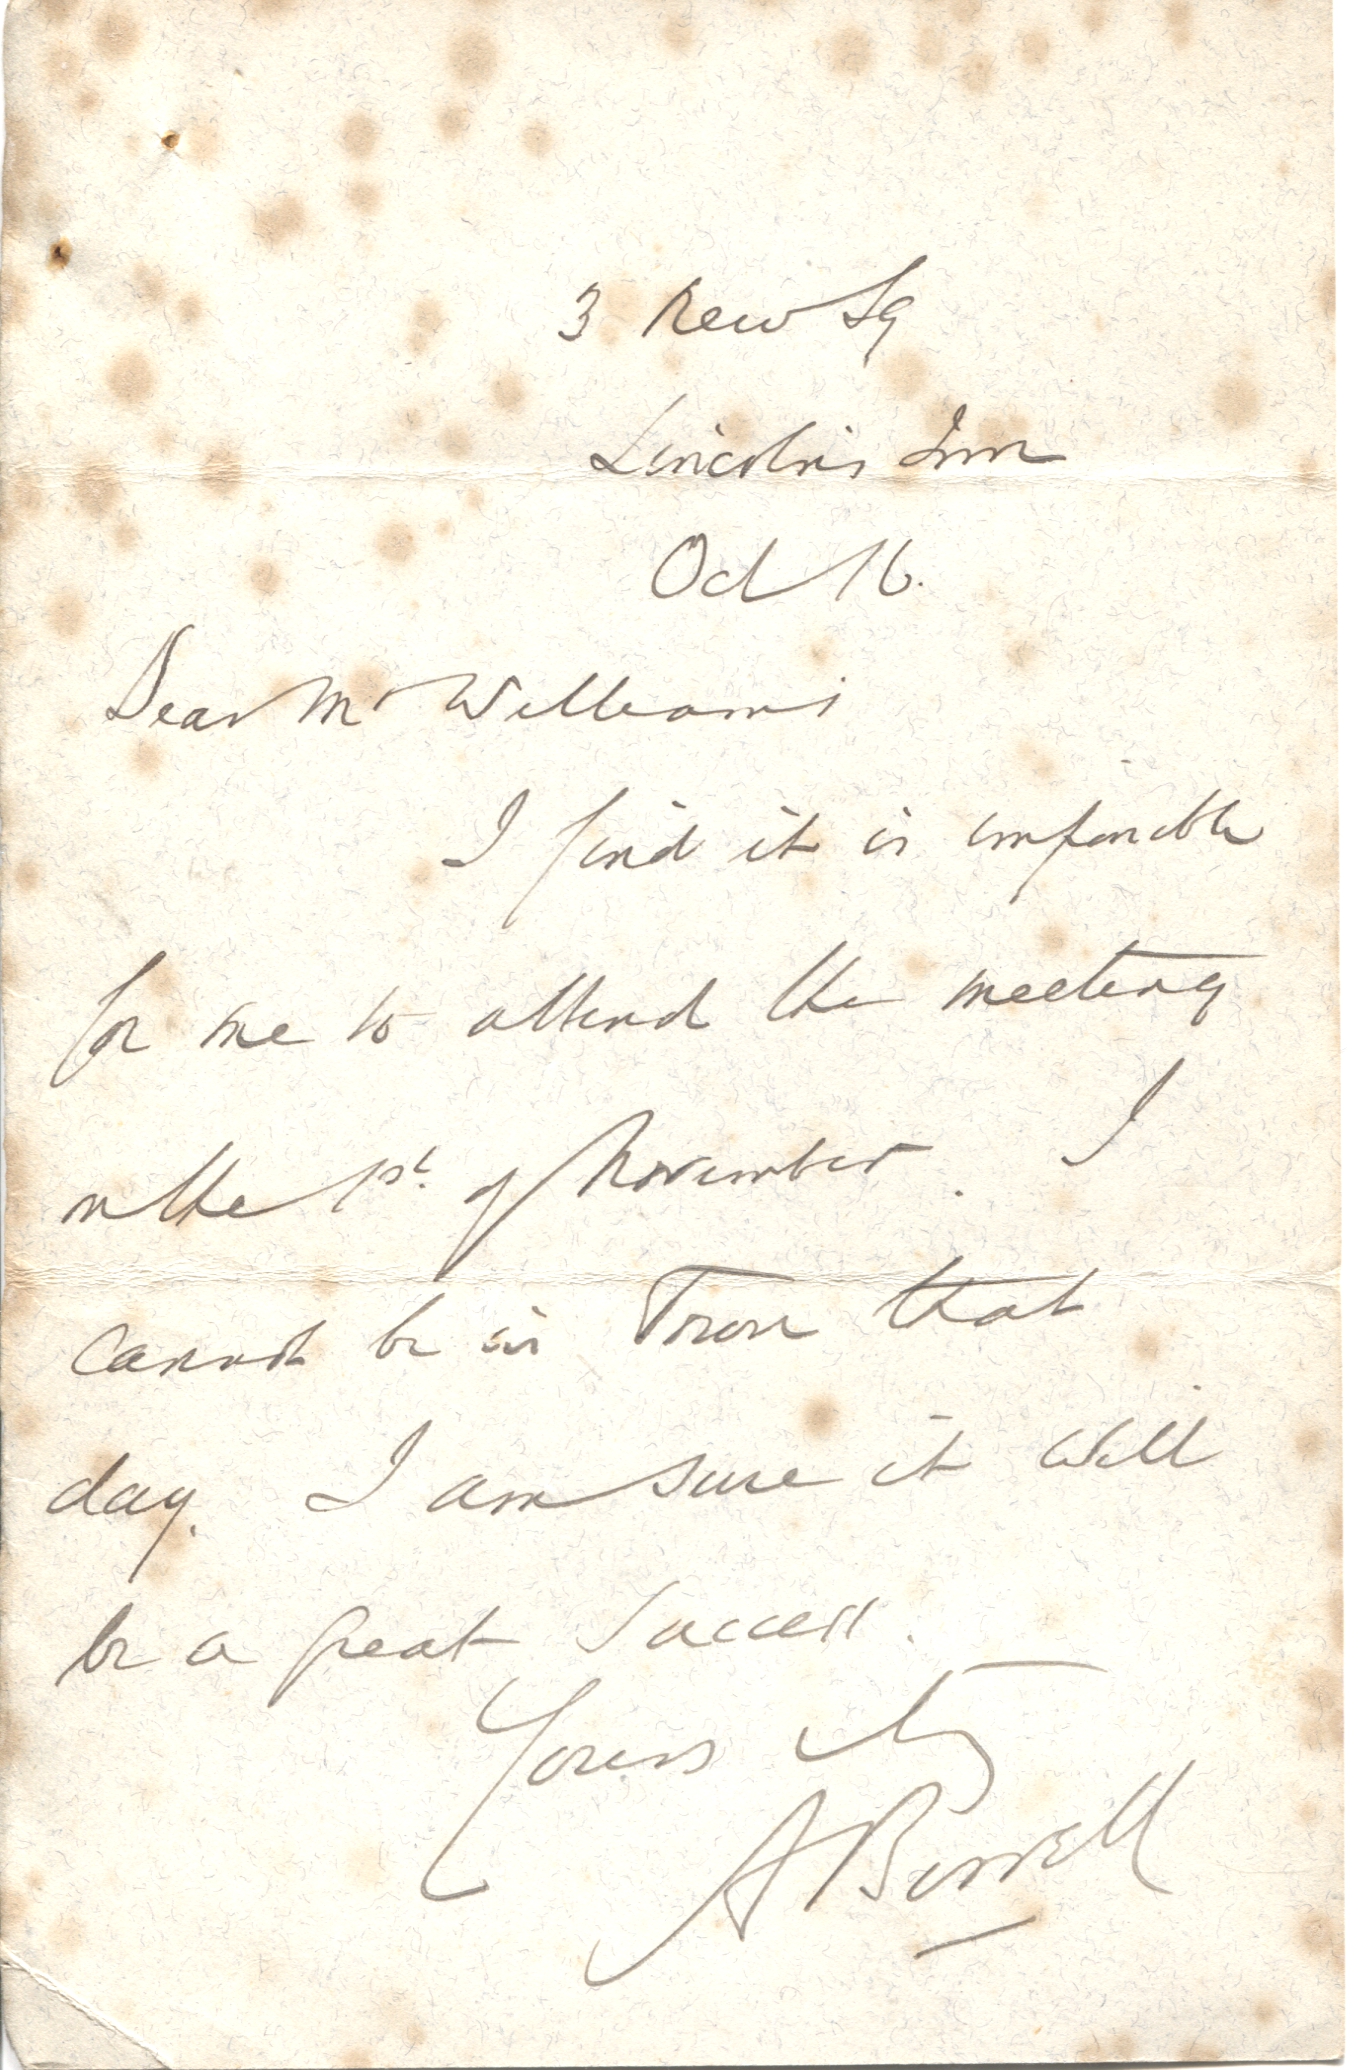 3 New Sq
Lincolns Inn
Oct 16.
Dear Mr Williams
I find it is impossible
for me to attend the meeting
on the 1st. of November. I
cannot be in Town that
day. I am sure it will
be a great success.
Yours
A Birrell